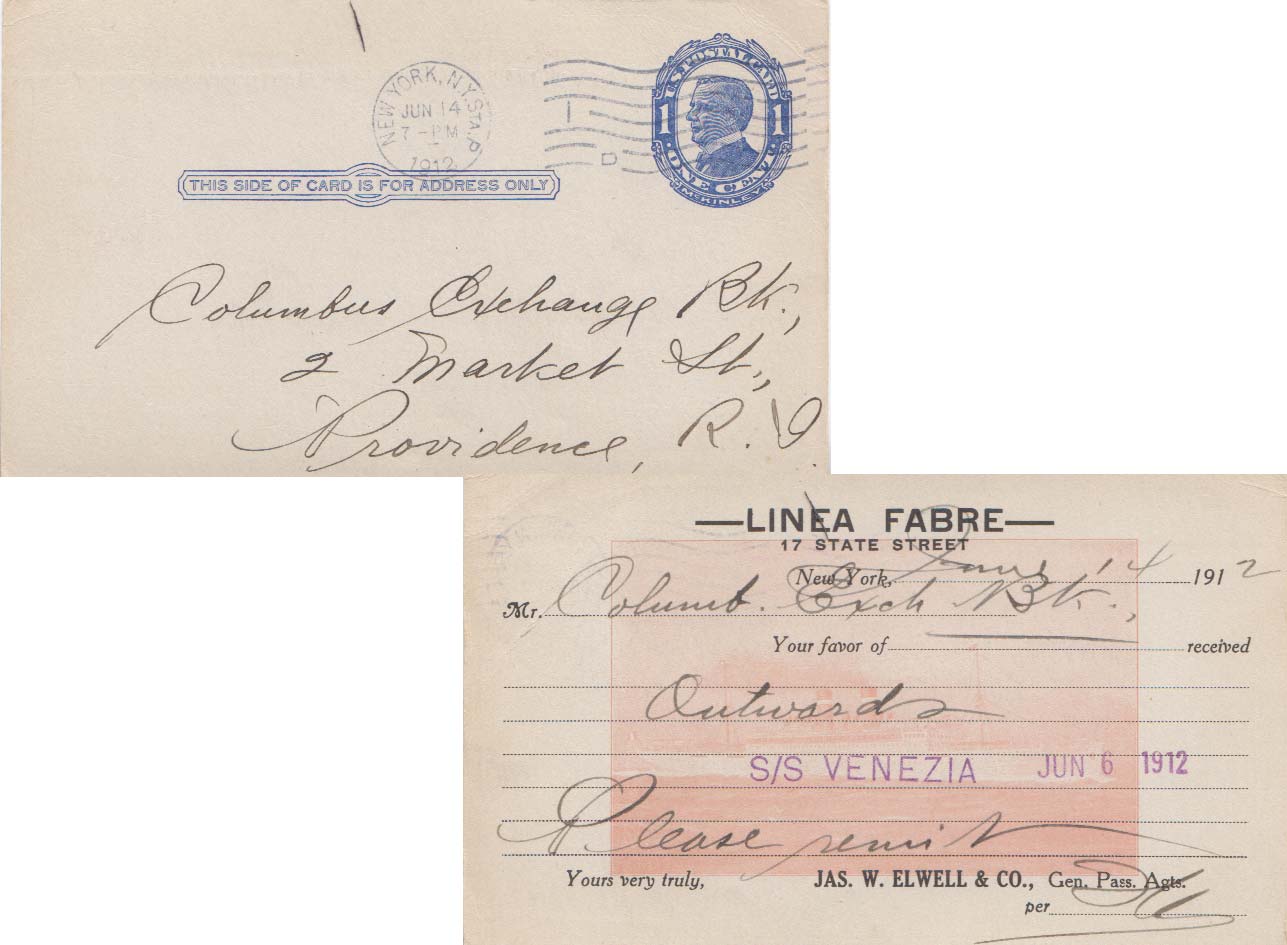 U.S. POSTAL CARD
1 1
ONE CENT
McKINLEY
NEW YORK, N.Y. STA. P
JUN 14
7 - PM
1912
1
D
THIS SIDE OF CARD IS FOR ADDRESS ONLY
Columbus Exchange Bk.,
2 Market St.,
Providence, R.I.
LINEA FABRE
17 STATE STREET
New York, June 14 1912
Mr. Columb. Exch Bk.,
Your favor of received
Outwards
S/S VENEZIA JUN 6 1912
Please remit
Yours very truly, JAS. W. ELWELL & CO., Gen. Pass. Agts.
per